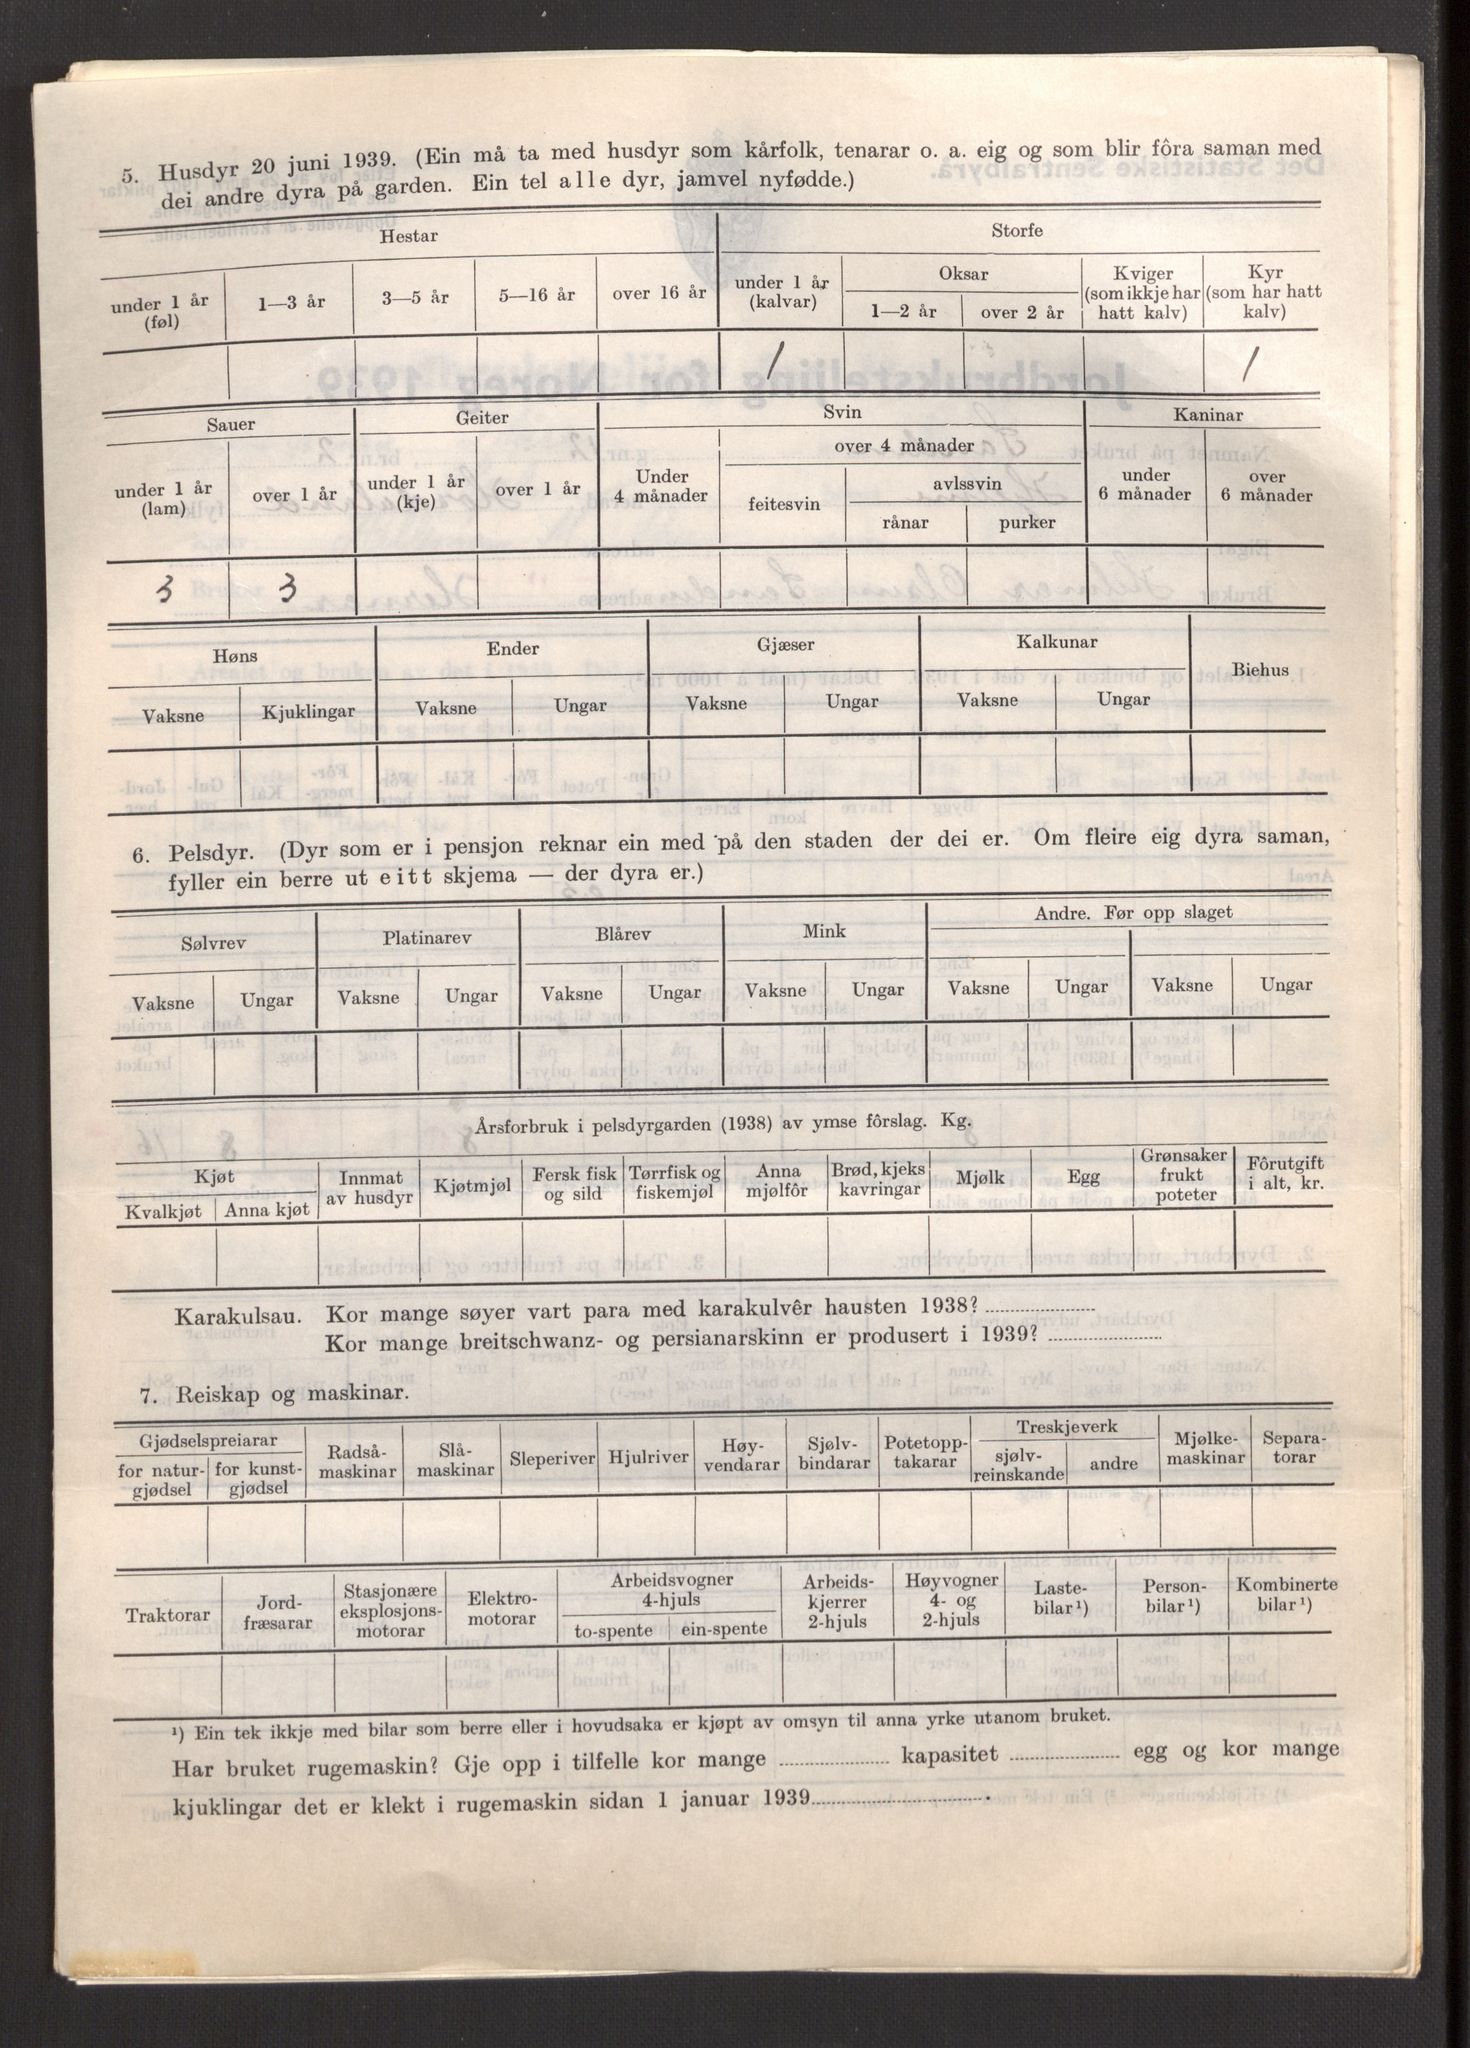 5. Husdyr 20 juni 1939. (Ein må ta med husdyr som kårfolk, tenarar o. a. eig og som blir fôra saman med
dei andre dyra på garden. Ein tel alle dyr, jamvel nyfødde.)
Hestar Storfe
under 1 år (føl) 1—3 år 3—5 år 5—16 år over 16 år under 1 år (kalvar) Oksar 1—2 år over 2 år Kviger (som ikkje har hatt kalv) Kyr (som har hatt kalv)
1 1
Sauer Geiter Svin Kaninar
under 1 år (lam) over 1 år under 1 år (kje) over 1 år Under 4 månader over 4 månader feitesvin avlssvin rånar purker under 6 månader over 6 månader
3 3
Høns Ender Gjæser Kalkunar Biehus
Vaksne Kjuklingar Vaksne Ungar Vaksne Ungar Vaksne Ungar
6. Pelsdyr. (Dyr som er i pensjon reknar ein med på den staden der dei er. Om fleire eig dyra saman,
fyller ein berre ut eitt skjema — der dyra er.)
Sølvrev Platinarev Blårev Mink Andre. Før opp slaget
Vaksne Ungar Vaksne Ungar Vaksne Ungar Vaksne Ungar Vaksne Ungar Vaksne Ungar
Årsforbruk i pelsdyrgarden (1938) av ymse fôrslag. Kg.
Kjøt Kvalkjøt Anna kjøt Innmat av husdyr Kjøtmjøl Fersk fisk og sild Tørrfisk og fiskemjøl Anna mjølfôr Brød, kjeks kavringar Mjølk Egg Grønsaker frukt poteter Fôrutgift i alt, kr.
Karakulsau. Kor mange søyer vart para med karakulvêr hausten 1938?
Kor mange breitschwanz- og persianarskinn er produsert i 1939?
7. Reiskap og maskinar.
Gjødselspreiarar for natur-gjødsel for kunst-gjødsel Radså-maskinar Slå-maskinar Sleperiver Hjulriver Høy-vendarar Sjølv-bindarar Potetopp-takarar Treskjeverk sjølv-reinskande andre Mjølke-maskinar Separa-torar
Traktorar Jord-fræsarar Stasjonære eksplosjons-motorar Elektro-motorar Arbeidsvogner 4-hjuls to-spente ein-spente Arbeids-kjerrer 2-hjuls Høyvogner 4- og 2-hjuls Laste-bilar¹) Person-bilar¹) Kombinerte bilar¹)
¹) Ein tek ikkje med bilar som berre eller i hovudsaka er kjøpt av omsyn til anna yrke utanom bruket.
Har bruket rugemaskin? Gje opp i tilfelle kor mange kapasitet egg og kor mange
kjuklingar det er klekt i rugemaskin sidan 1 januar 1939